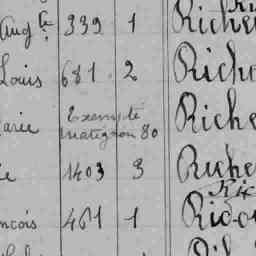 Aug te 339 1 Riche
Louis 681 2 Rich
arie Exempté Riche
Matignon 80
ie 1403 3 Riche
Ric
ncois 461 1 Rico